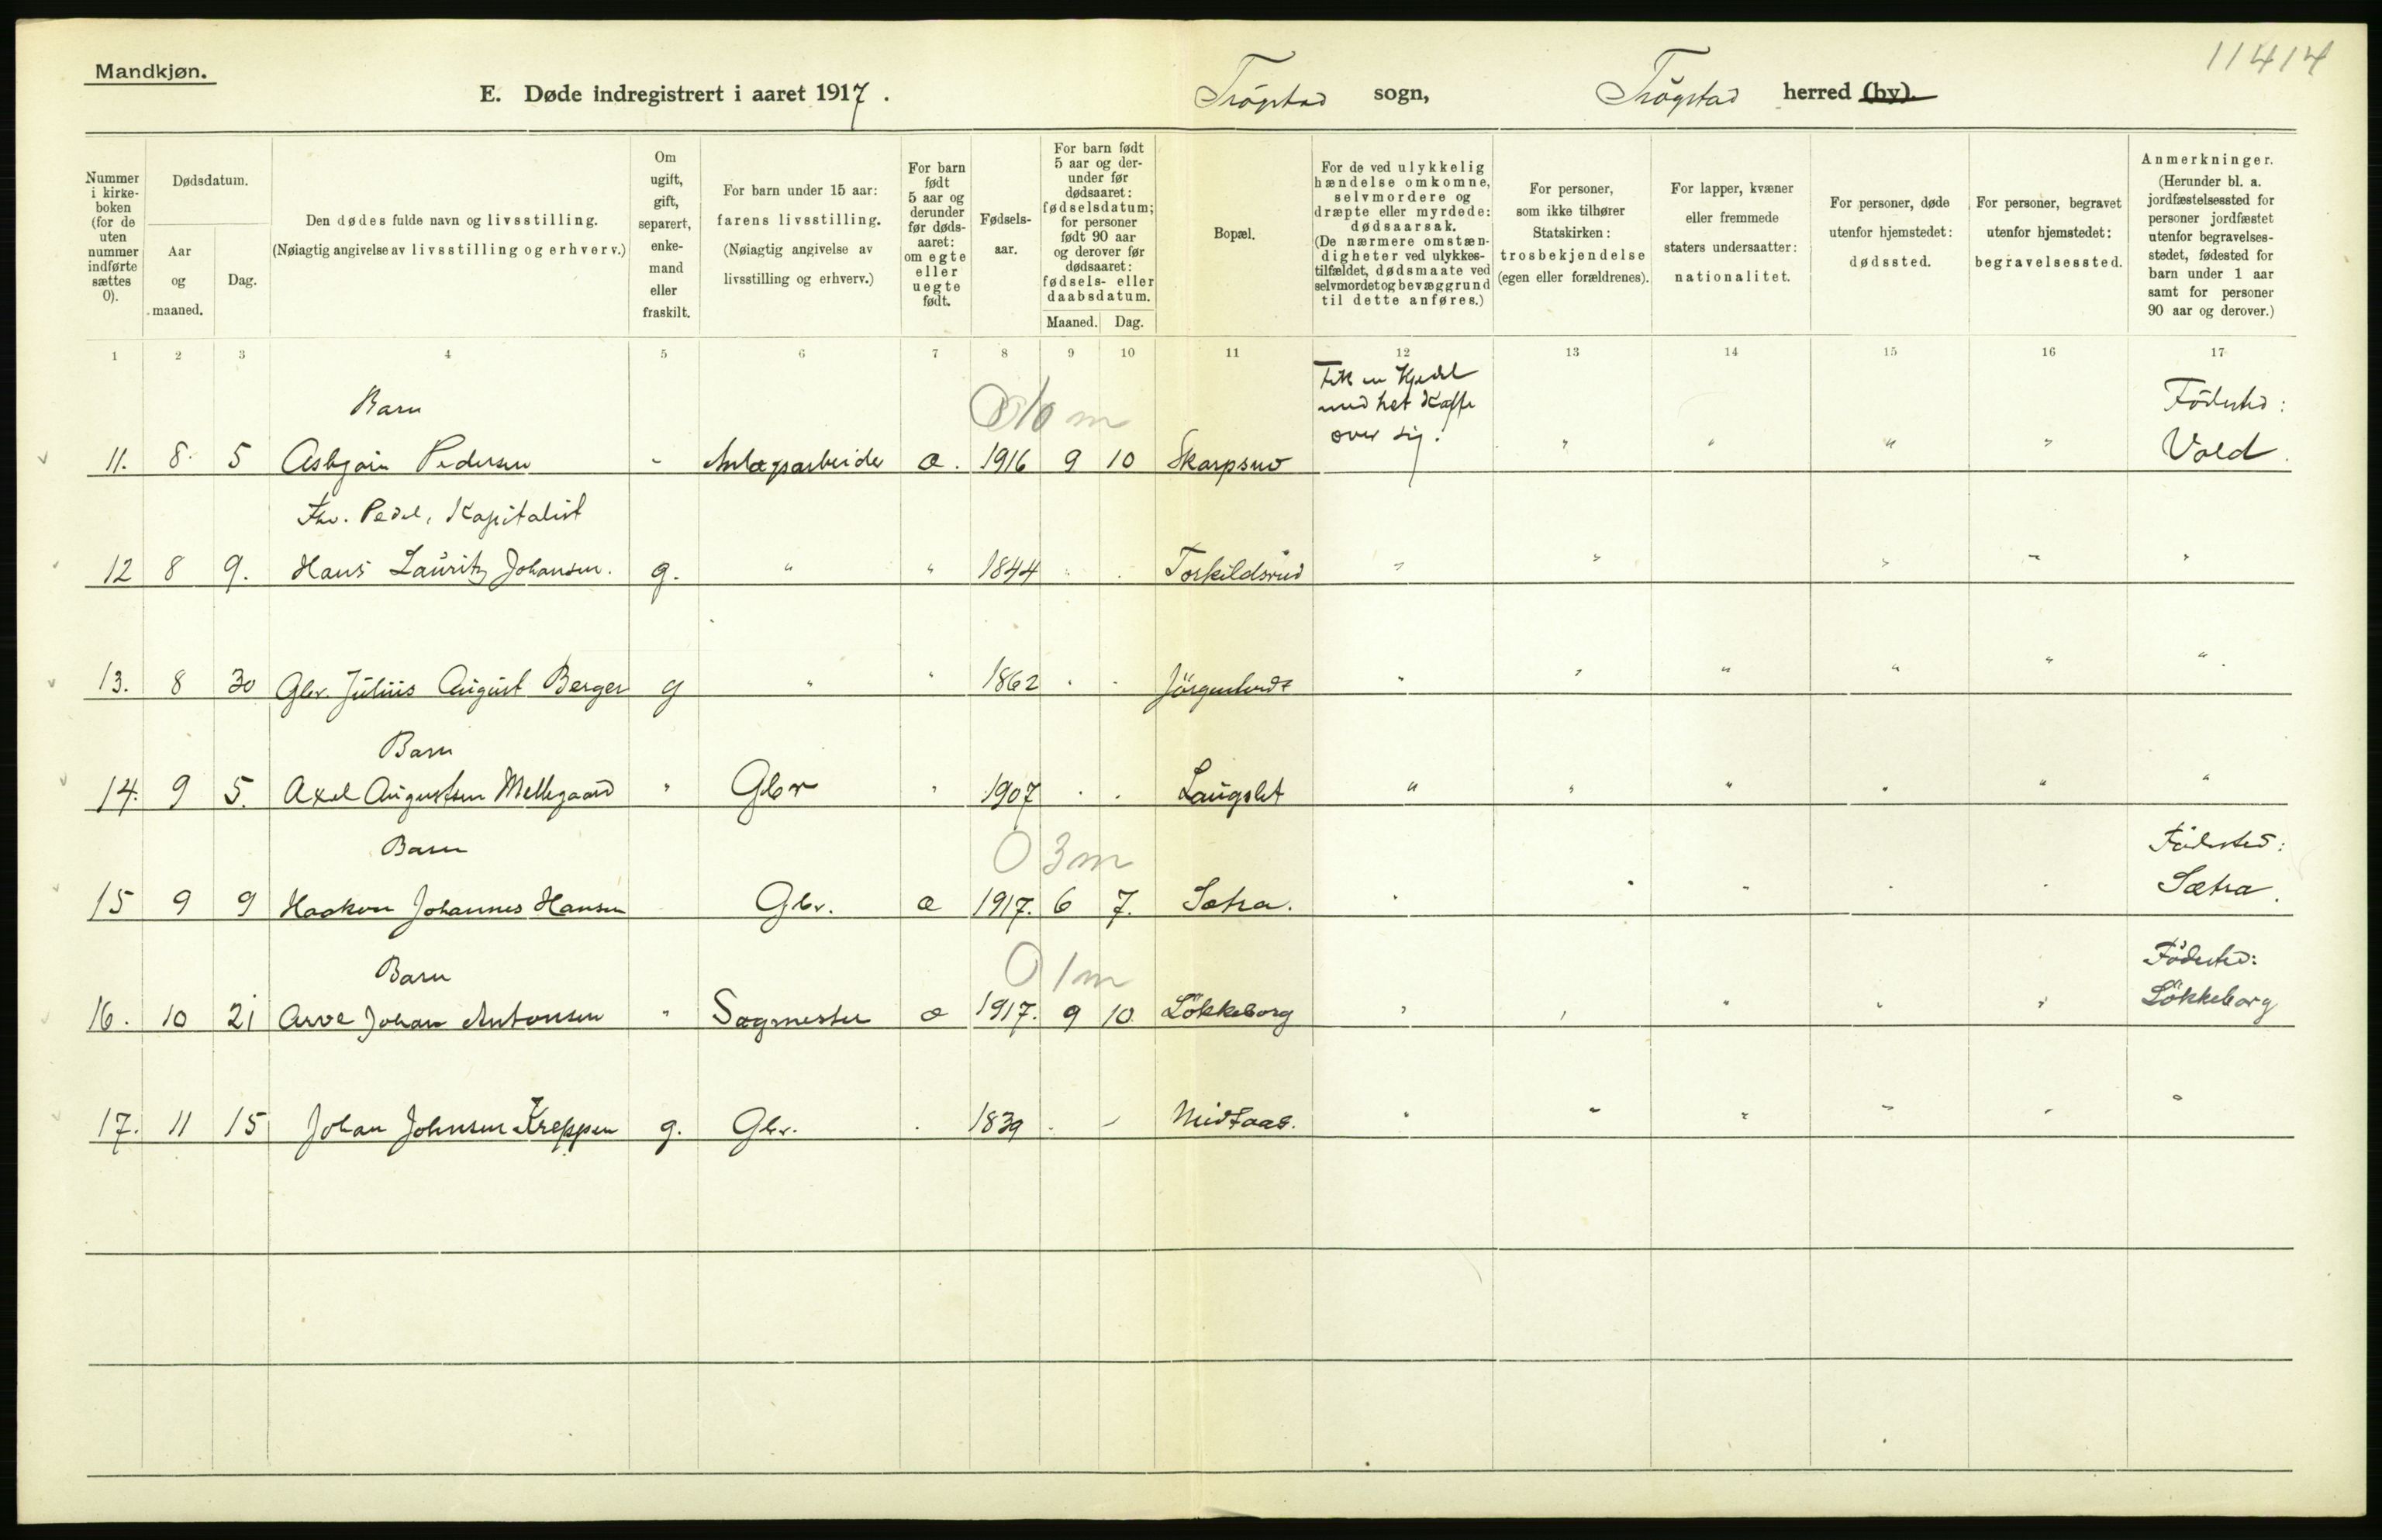 Mandkjøn.
11414
E. Døde indregistrert i aaret 1917.
Trögstad sogn, Trögstad herred (by).
Nummer i kirke-boken (for de uten nummer indførte sættes 0).
Dødsdatum.
Aar og maaned.
Dag.
Den dødes fulde navn og livsstilling.
(Nøiagtig angivelse av livsstilling og erhverv.)
Om ugift, gift, separert, enke-mand eller fraskilt.
For barn under 15 aar: farens livsstilling.
(Nøiagtig angivelse av livsstilling og erhverv.)
For barn født 5 aar og derunder før døds-aaret: om egte eller uegte født.
Fødsels-aar.
For barn født 5 aar og der-under før dødsaaret: fødselsdatum; for personer født 90 aar og derover før dødsaaret: fødsels- eller daabsdatum.
Maaned. Dag.
Bopæl.
For de ved ulykkelig hændelse omkomne, selvmordere og dræpte eller myrdede: dødsaarsak.
(De nærmere omstæn-digheter ved ulykkes-tilfældet, dødsmaate ved selvmordet og bevæggrund til dette anføres.)
For personer, som ikke tilhører Statskirken: trosbekjendelse (egen eller forældrenes).
For lapper, kvæner eller fremmede staters undersaatter: nationalitet.
For personer, døde utenfor hjemstedet: dødssted.
For personer, begravet utenfor hjemstedet: begravelsessted.
Anmerkninger.
(Herunder bl. a. jordfæstelsessted for personer jordfæstet utenfor begravelses-stedet, fødested for barn under 1 aar samt for personer 90 aar og derover.)
1 2 3 4 5 6 7 8 9 10 11 12 13 14 15 16 17
Barn 0 10 m Fik en Kjedel med het Kaffe over sig. Födested:
11. 8. 5 Asbjørn Pedersen - Anlægsarbeider æ. 1916 9 10 Skarpsno " " " " Vold.
Kapitalist
12 8 9. Hans Lauritz Johansen. g. " " 1844 Torkildsrud " " " " "
13. 8 30 Gbr. Julius August Berger g " " 1862 " " " " " "
Barn
14. 9 5. Axel Augustsen Mellegaard " Gbr " 1907 Langslet " " " " " "
Barn 0 3 m Födested:
15 9 9 Haakon Johannes Hansen Gbr. æ 1917. 6 7. Sætra. Sætra.
Barn 0 1 m Födested:
16. 10 21 Arve Johan Antonsen " Sagmester æ 1917. 9 10 Lökkeborg " " " " " Lökkeborg
17. 11 15 Johan Johnsen Kreppen g. Gbr. 1839 - " " " " " "